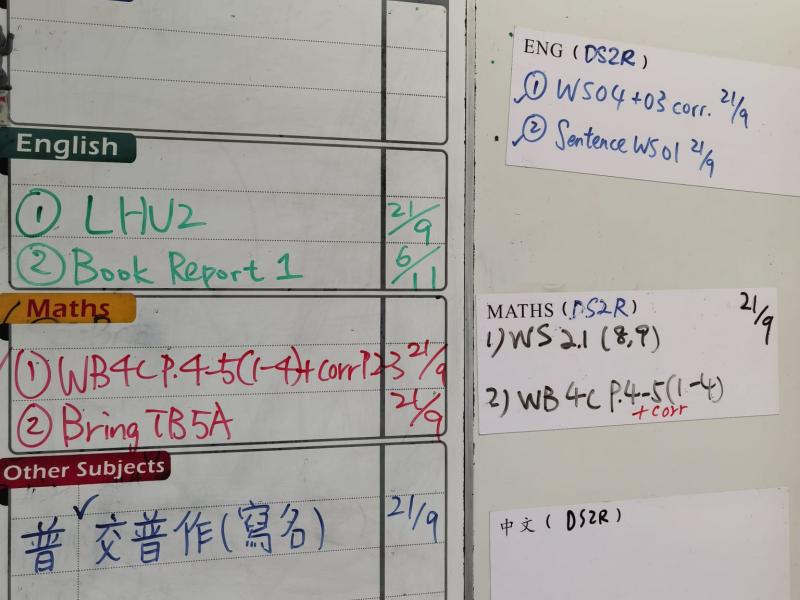 English
① LHU2 21/9
② Book Report 1 6/11
Maths
① WB4C P.4-5(1-4)+corr P.2-3 21/9
② Bring TB5A 21/9
Other Subjects
普 交普作(寫名) 21/9
ENG (DS2R)
① WS04+03 corr. 21/9
② Sentence WS01 21/9
MATHS (DS2R) 21/9
1) WS 2.1 (8,9)
2) WB 4C P.4-5(1-4)
+corr
中文 ( DS2R )